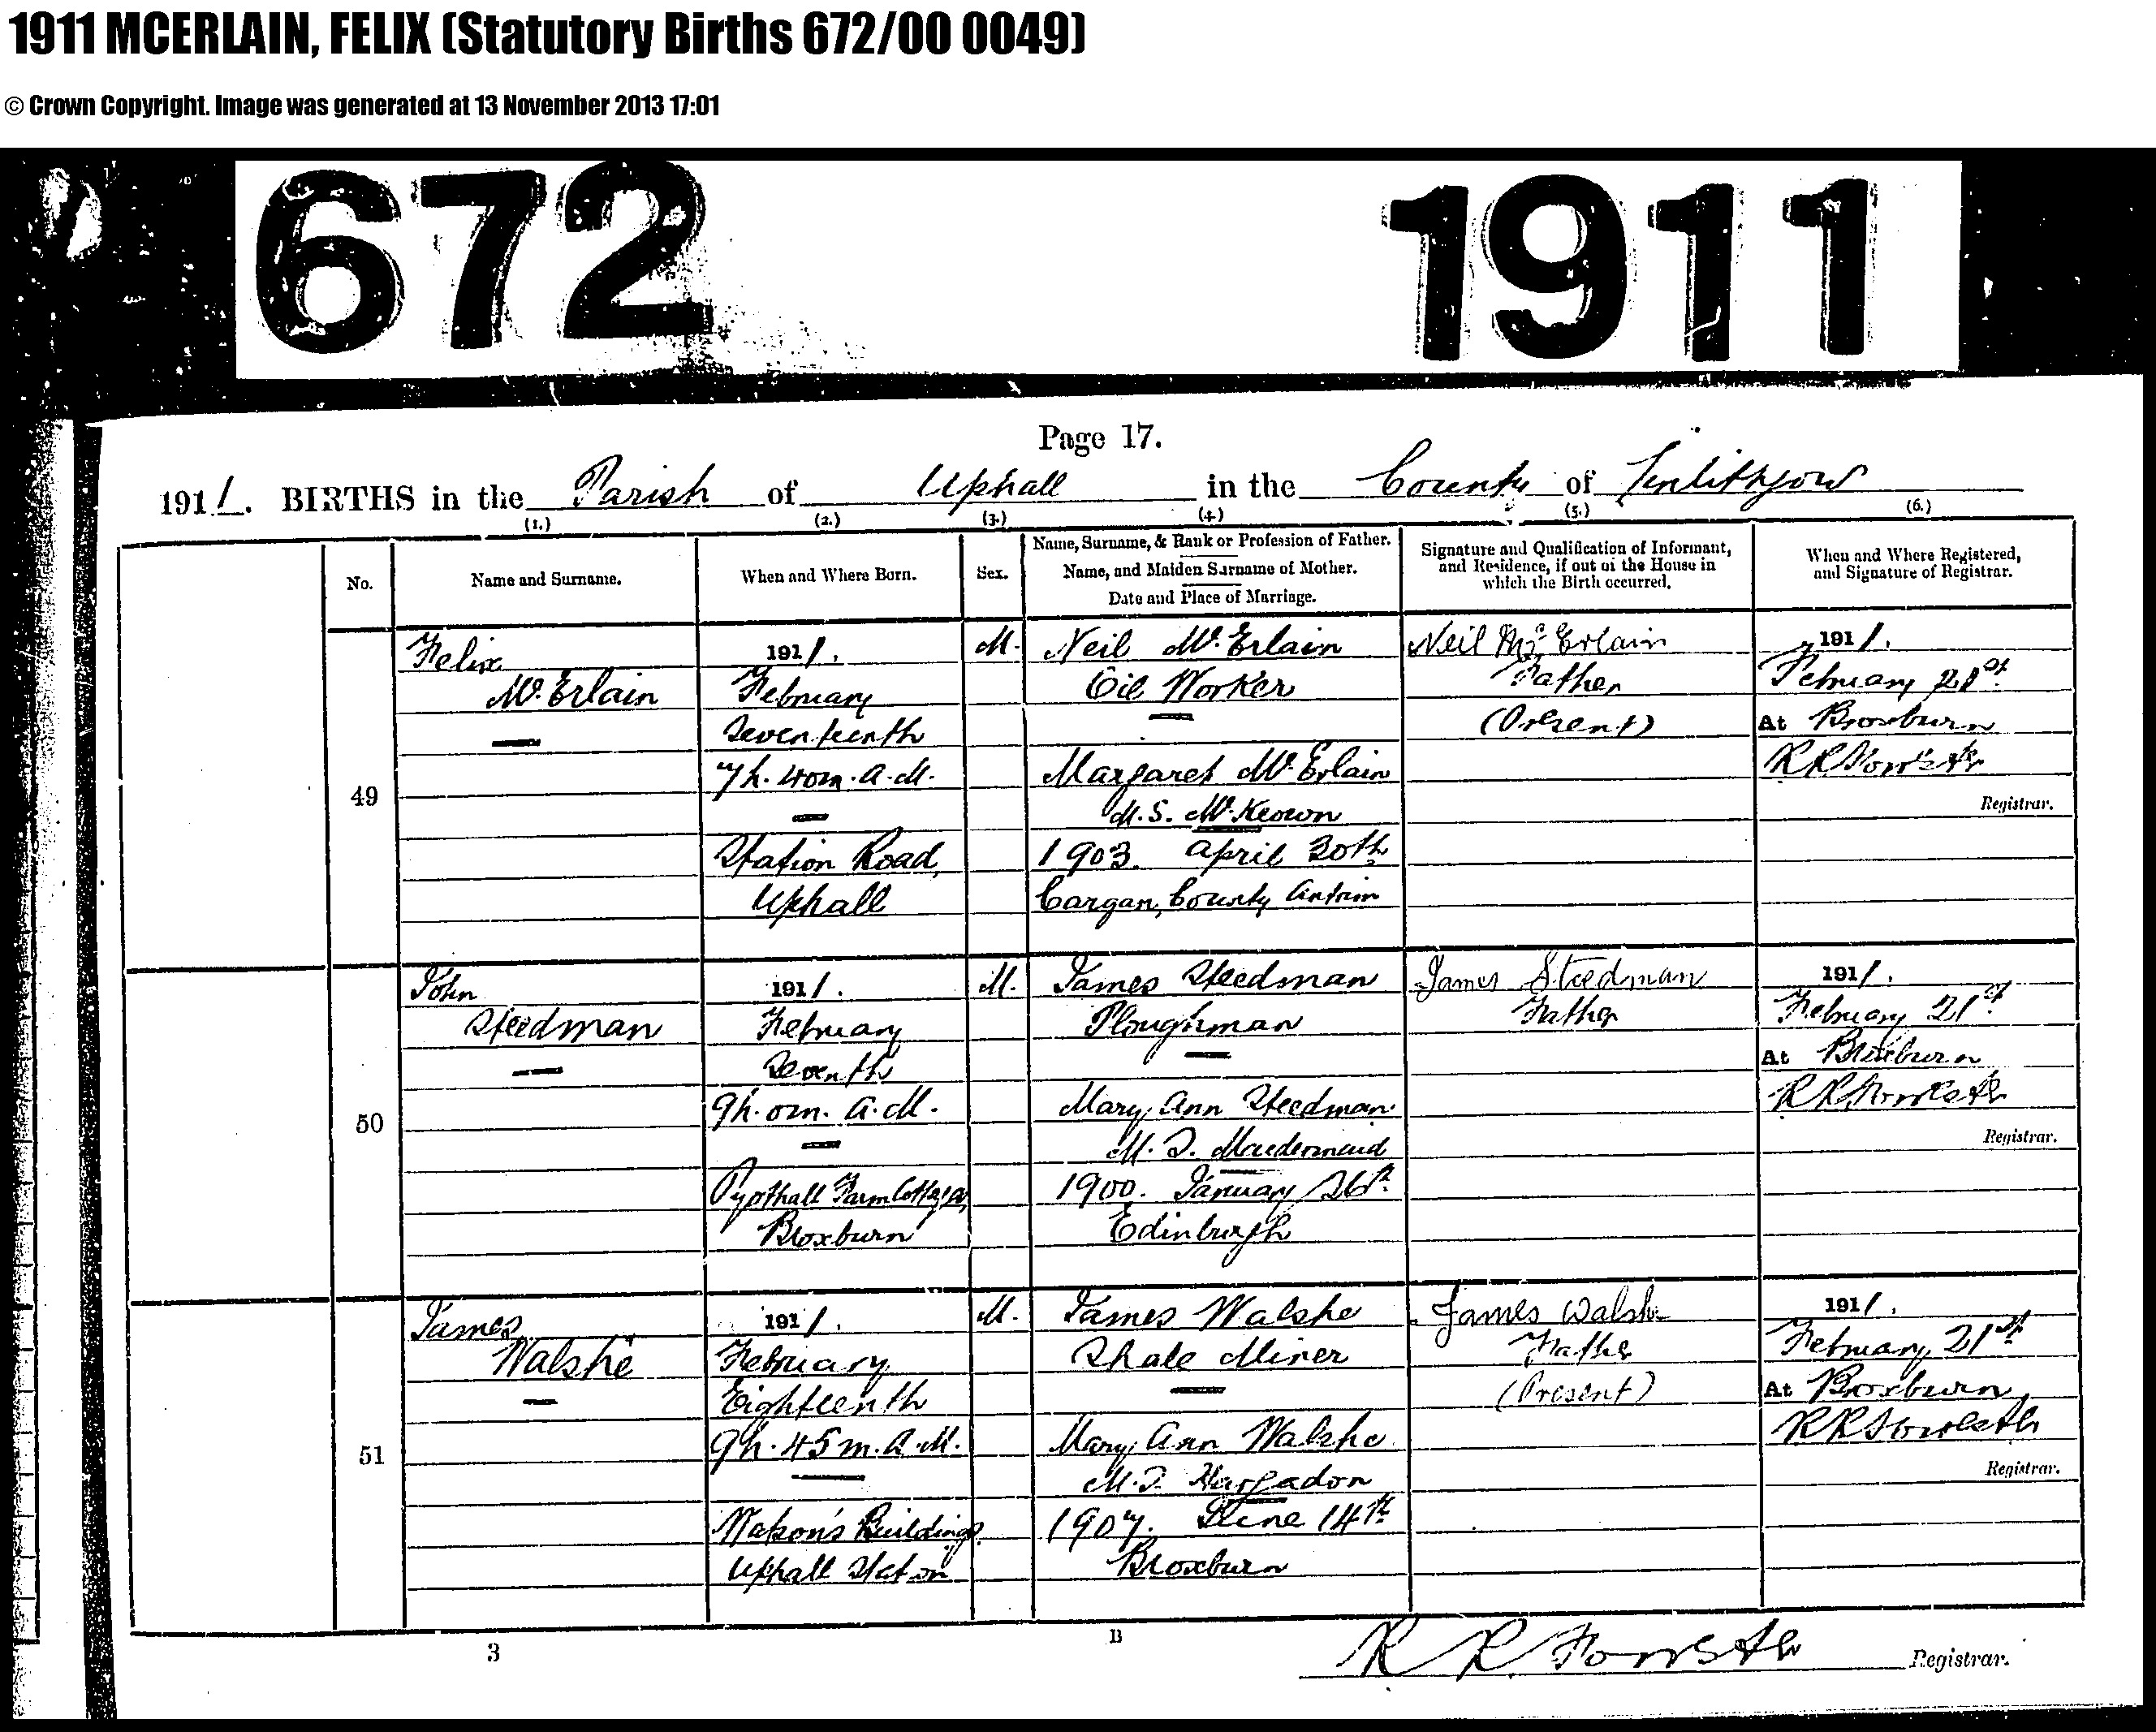 1911 MCERLAIN, FELIX (Statutory Births 672/00 0049)
© Crown Copyright. Image was generated at 13 November 2013 17:01
672 1911
Page 17.
1911. BIRTHS in the Parish of Uphall in the County of Linlithgow
(1.) (2.) (3.) (4.) (5.) (6.)
No.
Name and Surname.
When and Where Born.
Sex.
Name, Surname, & Rank or Profession of Father.
Name, and Maiden Surname of Mother.
Date and Place of Marriage.
Signature and Qualification of Informant,
and Residence, if out of the House in
which the Birth occurred.
When and Where Registered,
and Signature of Registrar.
49
Felix
McErlain
1911.
February
Seventeenth
7h. 40m. A.M.
Station Road,
Uphall
M.
Neil McErlain
Oil Worker
Margaret McErlain
M.S. McKeown
1903. April 30th
Cargan, County Antrim
Neil McErlain
Father
(Present)
1911.
February 21st
At Broxburn
Registrar.
50
John
Steedman
1911.
February
Seventh
9h. 0m. A.M.
Pyothall Farm Cottages,
Broxburn
M.
James Steedman
Ploughman
Mary Ann Steedman
M.S. Macdermaid
1900. January 26th
Edinburgh
James Steedman
Father
1911.
February 21st
At Broxburn
Registrar.
51
James
Walshe
1911.
February
Eighteenth
9h. 45m. A.M.
Watson's Buildings
Uphall Station
M.
James Walshe
Shale Miner
Mary Ann Walshe
M.S. Hargadon
1907. June 14th
Broxburn
James Walshe
Father
(Present)
1911.
February 21st
At Broxburn
Registrar.
3 B
R R Registrar.